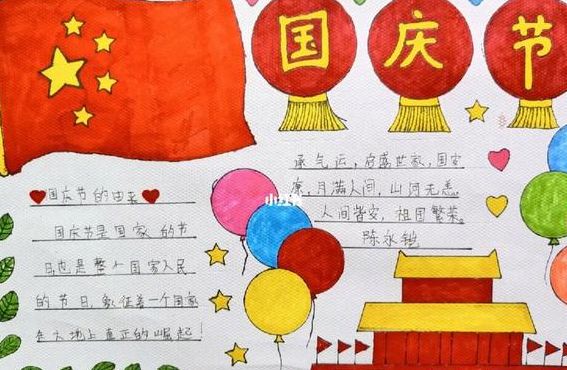 国庆节
国庆节的由来
国庆节是国家的节
日也是整个国家人民
的节日,象征着一个国家
在大地上真正的崛起!
承气运,启盛世家,国安
康,月满人间,山河无恙
人间皆安,祖国繁荣。
小红书